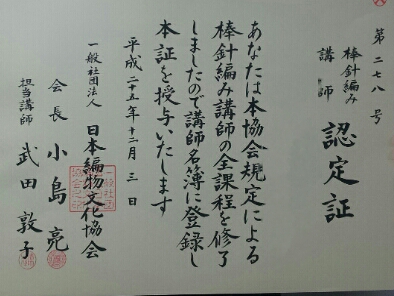 第二七八号
棒針編み
講師
認定証
あなたは本協会規定による
棒針編み講師の全課程を修了
しましたので講師名簿に登録し
本証を授与いたします
平成二十五年十二月三日
一般社団法人
日本編物文化協会
会長 小島亮
担当講師 武田敦子